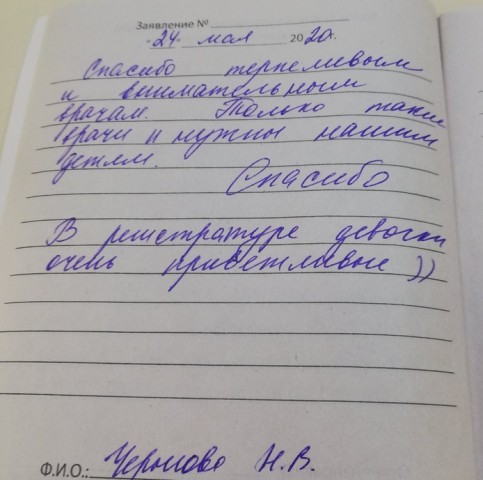 Заявление №
"24" мая 2020г.
Спасибо терпеливым
и внимательным
врачам. Только такие
врачи и нужны нашим
детям.
Спасибо
В регистратуре девочки
очень приветливые ))
Ф.И.О.: Н.В.